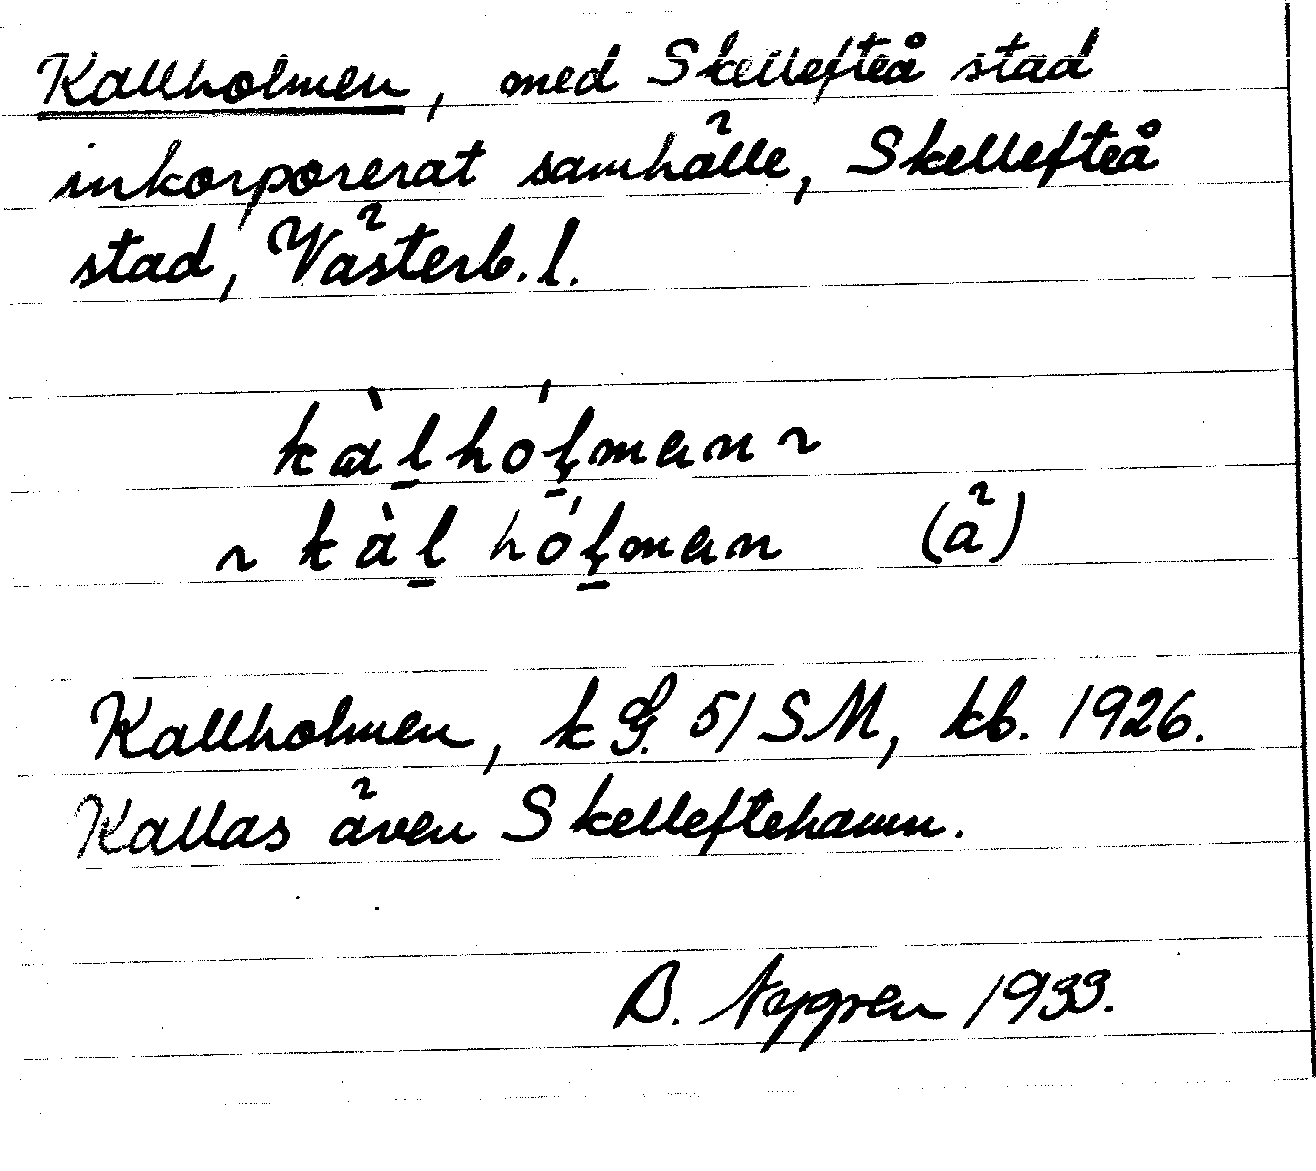 Kallholmen, med Skellefteå stad
inkorporerat samhälle, Skellefteå
stad, Västerb. l.
kàl̠hól̠man ~
~ kàl̠ hól̠man (ä)
Kallholmen, k G. 51 SM, kb. 1926.
Kallas även Skelleftehamn.
B. Nygren 1933.